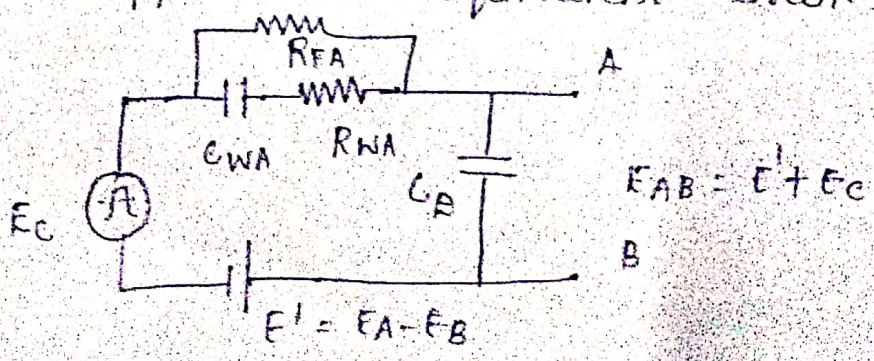 RFA
A
CWA RWA
CB
EAB = E' + EC
EC
B
E' = EA - EB